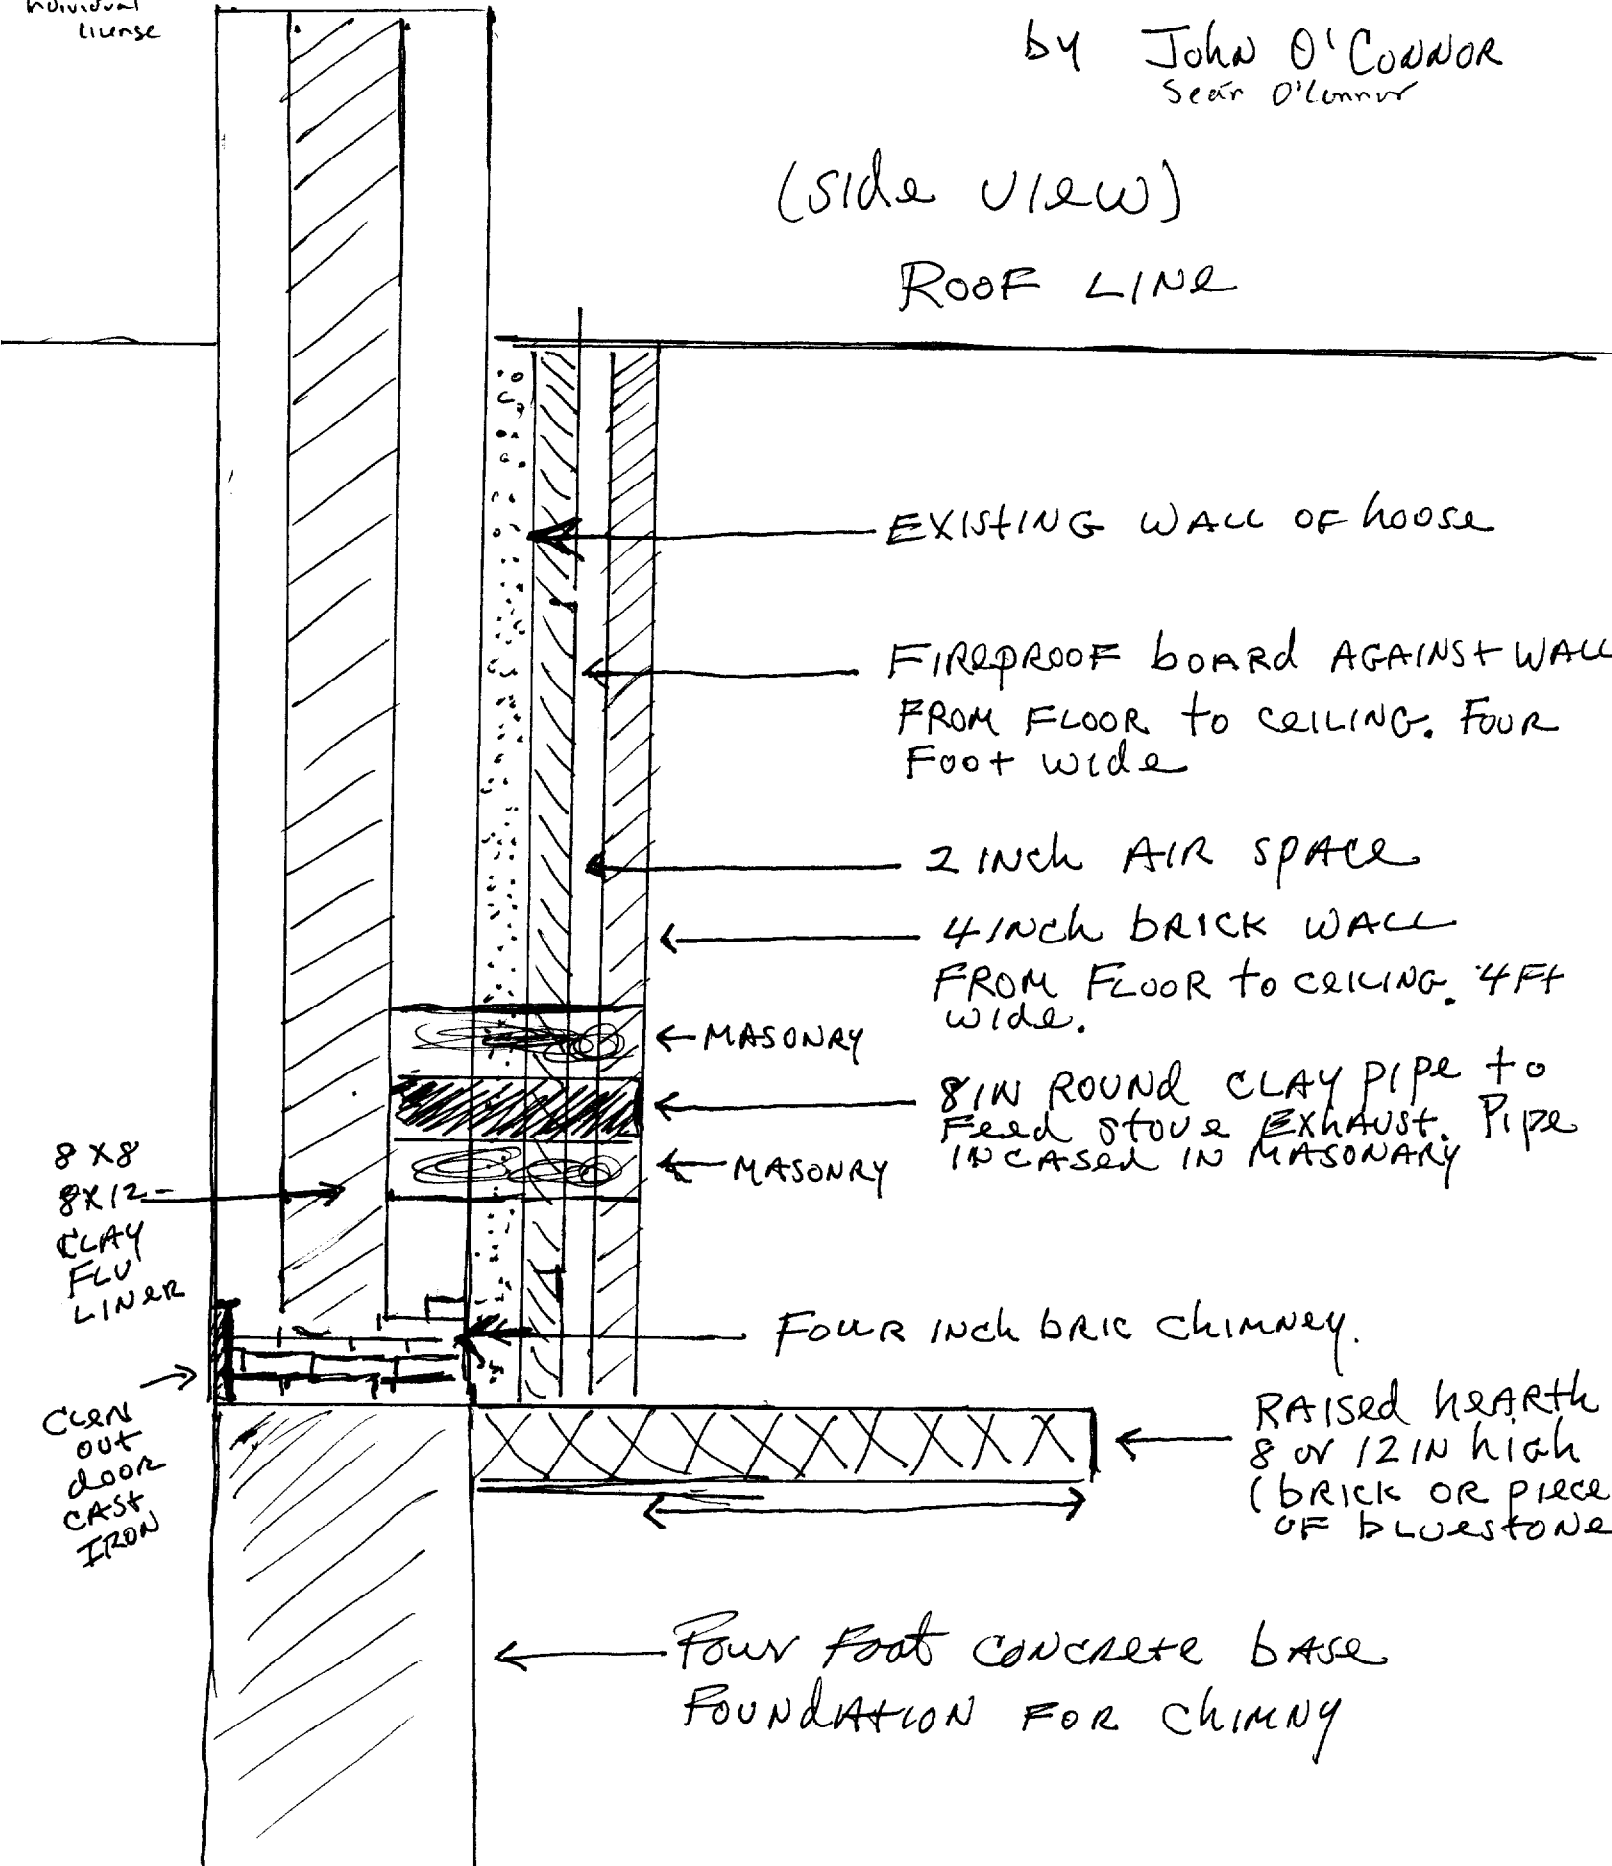 license
by John O'Connor
Seán O'Connor
(side view)
ROOF LINE
EXISTING WALL OF hoose
FIREPROOF bOARD AGAINST WALL
FROM FLOOR to CEILING. FOUR
FOOT wide
2 INch AIR SPACE
4 INch bRICK WALL
FROM FLOOR to CEILING. 4 Ft
wide.
← MASONRY
8 IN ROUND CLAY PIPE to
Feed stove EXHAUST. PIPE
INCASED IN MASONARY
← MASONRY
8 X 8
8 X 12
CLAY
FLU
LINER
FOUR INch bRIC chIMNEY.
CLEN
OUT
door
CAST
IRON
RAISed heARth
8 or 12 IN high
(bRICK OR PIECE
OF bLUESTONE
Four Foot CONCRETE bASE
FOUNdATION FOR ChIMNY